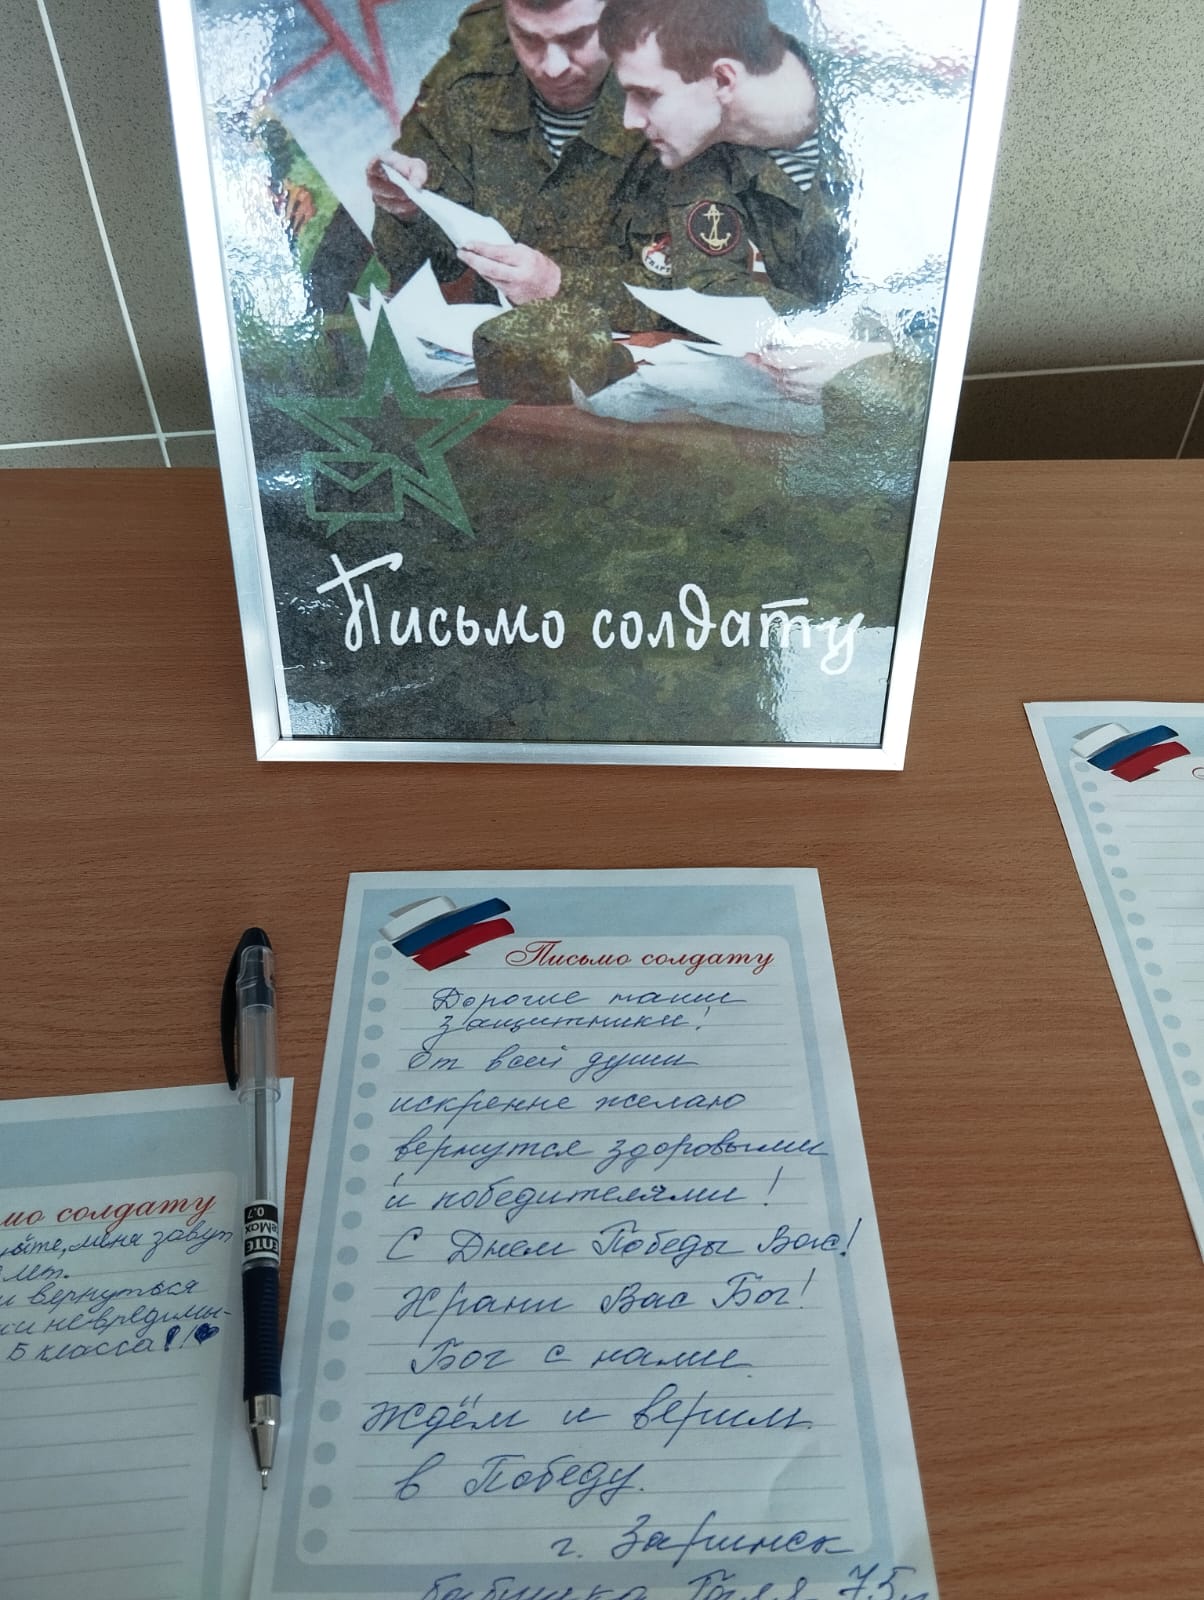 Письмо солдату
Письмо солдату
Дорогие наши
защитники!
От всей души
искренне желаю
вернутся здоровыми
и победителями!
С Днем Победы Вас!
Храни Вас Бог!
Бог с нами
Ждём и верим
в Победу.
г. Заринск
бабушка Галя 75л
мо солдату
уйте, меня зовут
лет.
и вернуться
и невредимы-
5 класса!!
0.7